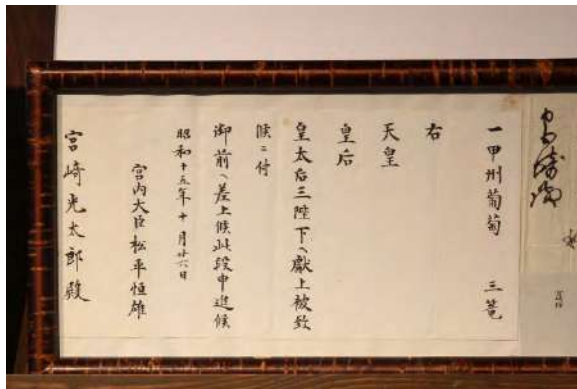 一甲州葡萄 三篭
右
天皇
皇后
皇太后三陛下ヘ獻上被致
候ニ付
御前ヘ差上候此段申進候
昭和十五年十月廿六日
宮内大臣松平恒雄
宮崎光太郎殿